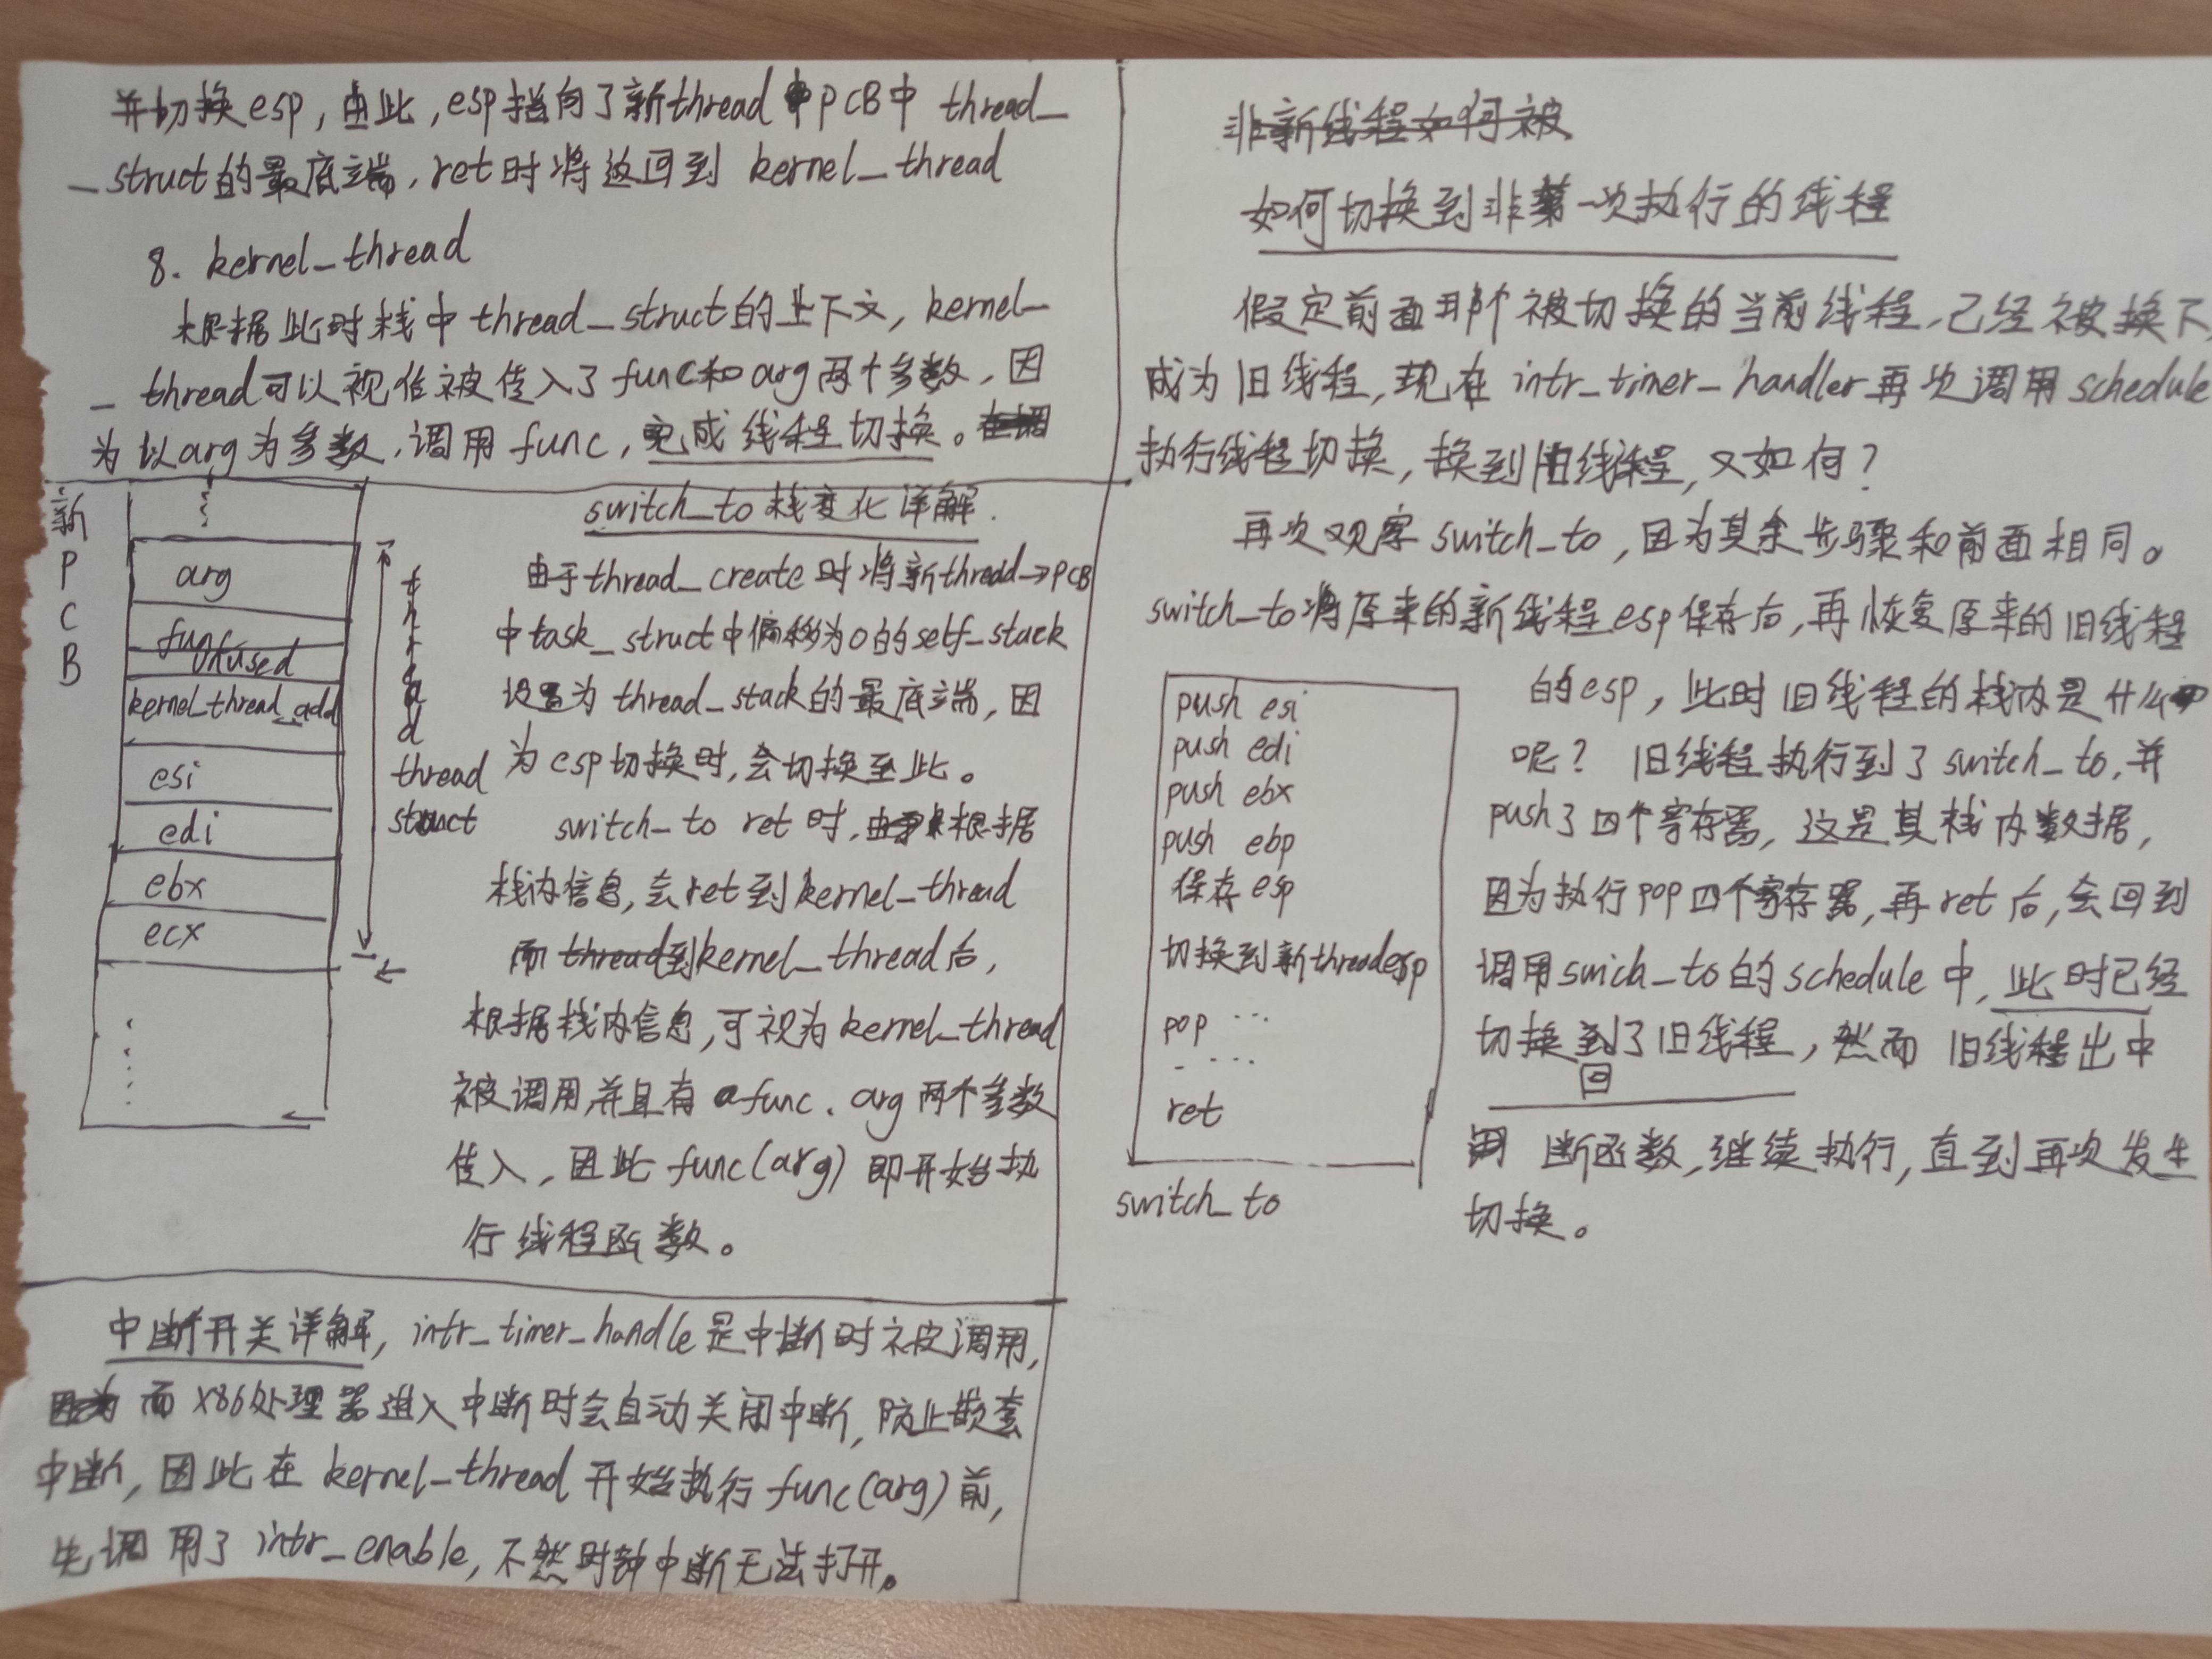 并切换esp，由此，esp指向了新thread PCB中 thread_
_struct的最底端，ret时将返回到 kernel_thread
8. kernel_thread
根据此时栈中thread_struct的上下文，kernel_
_thread可以视作被传入了func和arg两个参数，因
为以arg为参数，调用func，完成线程切换。
新
P
C
B
arg
func
unused
kernel_thread_add
esi
edi
ebx
ecx
thread
thread
struct
switch_to 栈变化详解.
由于thread_create时将新thread→PCB
中task_struct中偏移为0的self_stack
设置为thread_stack的最底端，因
为esp切换时，会切换至此。
switch_to ret时，根据
栈内信息，会ret到kernel_thread
而thread到kernel_thread后，
根据栈内信息，可视为kernel_thread
被调用，并且有func、arg两个参数
传入，因此func(arg)即开始执
行线程函数。
中断开关详解，intr_timer_handle是中断时被调用，
因为而x86处理器进入中断时会自动关闭中断，防止嵌套
中断，因此在kernel_thread开始执行func(arg)前，
先调用了intr_enable，不然时钟中断无法打开。
非新线程如何被
如何切换到非第一次执行的线程
假定前面那个被切换的当前线程，已经被换下，
成为旧线程，现在intr_timer_handler再次调用schedule
执行线程切换，换到旧线程，又如何？
再次观察switch_to，因为其余步骤和前面相同。
switch_to将原来的新线程esp保存后，再恢复原来的旧线程
的esp，此时旧线程的栈内是什么
呢？旧线程执行到了switch_to，并
push了四个寄存器，这是其栈内数据，
因为执行pop四个寄存器，再ret后，会回到
调用swich_to的schedule中，此时已经
切换到了旧线程，然而旧线程出中
回
断函数，继续执行，直到再次发生
切换。
push esi
push edi
push ebx
push ebp
保存esp
切换到新threadesp
pop ...
- ....
ret
switch_to